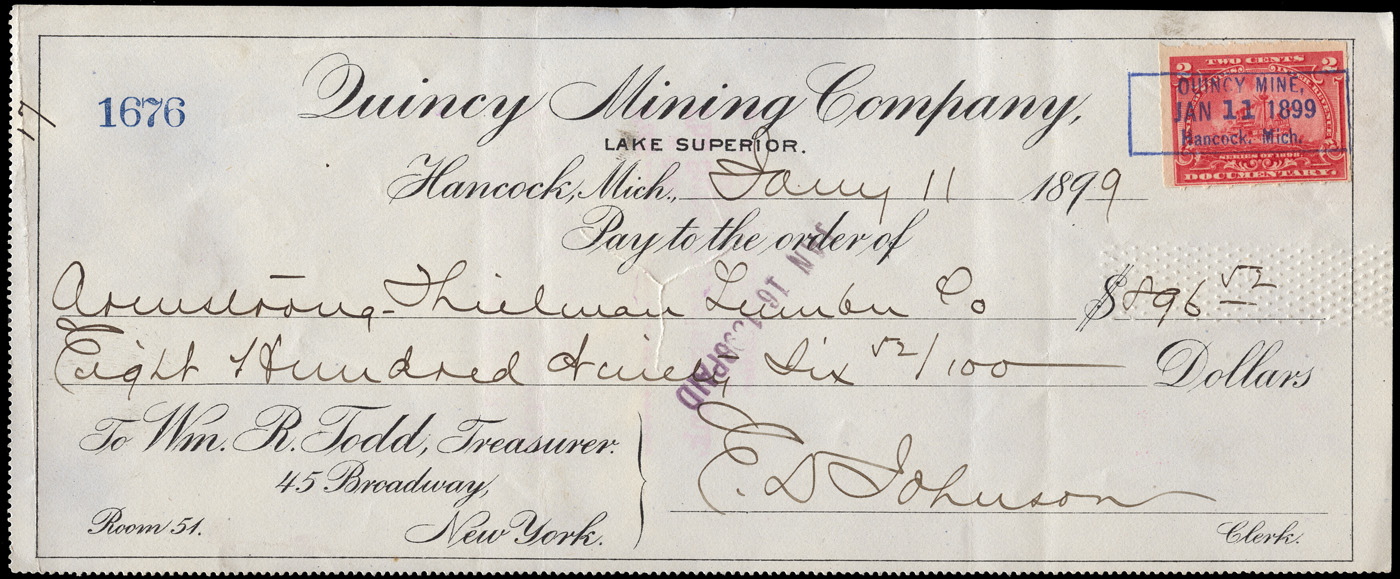 17
1676
Quincy Mining Company,
LAKE SUPERIOR.
2 TWO CENTS 2
QUINCY MINE,
JAN 11 1899
Hancock, Mich.
SERIES OF 1898
DOCUMENTARY.
Hancock, Mich., Jany 11 1899
Pay to the order of
Armstrong-Thielman Lumber Co $896 52
Eight Hundred Ninety Six 52/100 Dollars
JAN 16
PAID
To Wm. R. Todd, Treasurer.
45 Broadway,
Room 51. New York.
E. D Johnson
Clerk.